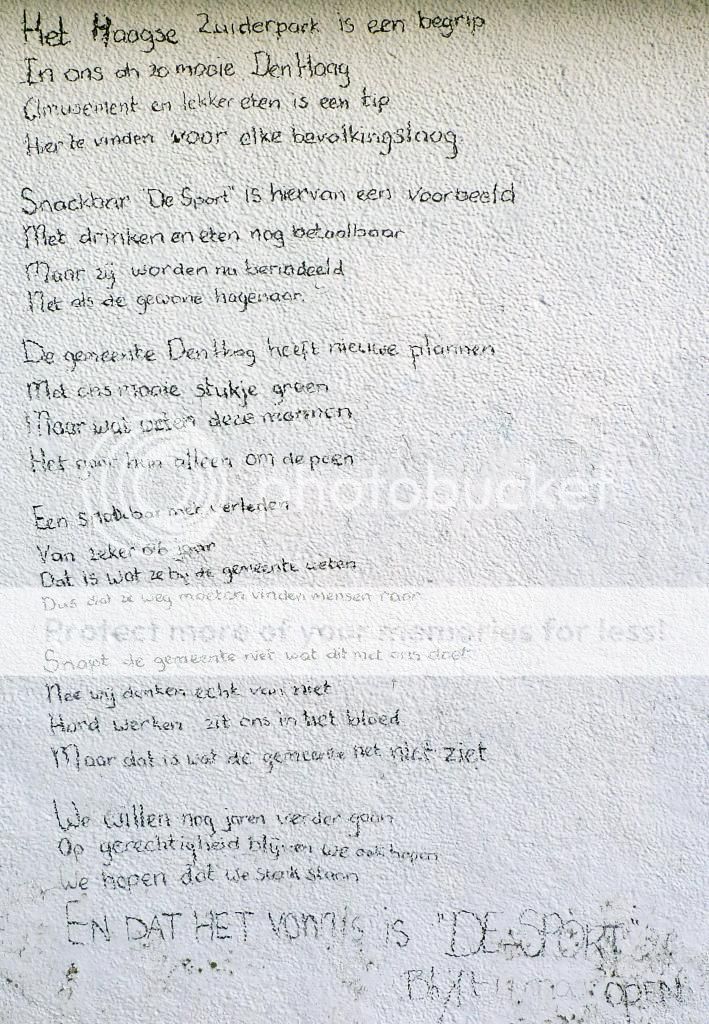 Het Haagse Zuiderpark is een begrip
In ons oh zo mooie Den Haag
Amusement en lekker eten is een tip
Hier te vinden voor elke bevolkingslaag.
Snackbar "De Sport" is hiervan een voorbeeld
Met drinken en eten nog betaalbaar
Maar zij worden nu beroordeeld
Net als de gewone hagenaar.
De gemeente Den Haag heeft nieuwe plannen
Met ons mooie stukje groen
Maar wat weten deze mannen
Het gaat hun alleen om de poen
Een snackbar met verleden
Van zeker jaar
Dat is wat ze bij de gemeente weten
Dus dat ze weg moeten vinden mensen raar
photobucket
Protect more of your memories for less!
Snapt de gemeente niet wat dit met ons doet
Nee wij denken echt van niet
Hard werken zit ons in het bloed
Maar dat is wat de gemeente net niet ziet
We willen nog jaren verder gaan
Op gerechtigheid blijven we ook hopen
We hopen dat we sterk staan
EN DAT HET VONNIS IS "DE SPORT"
Blijft OPEN